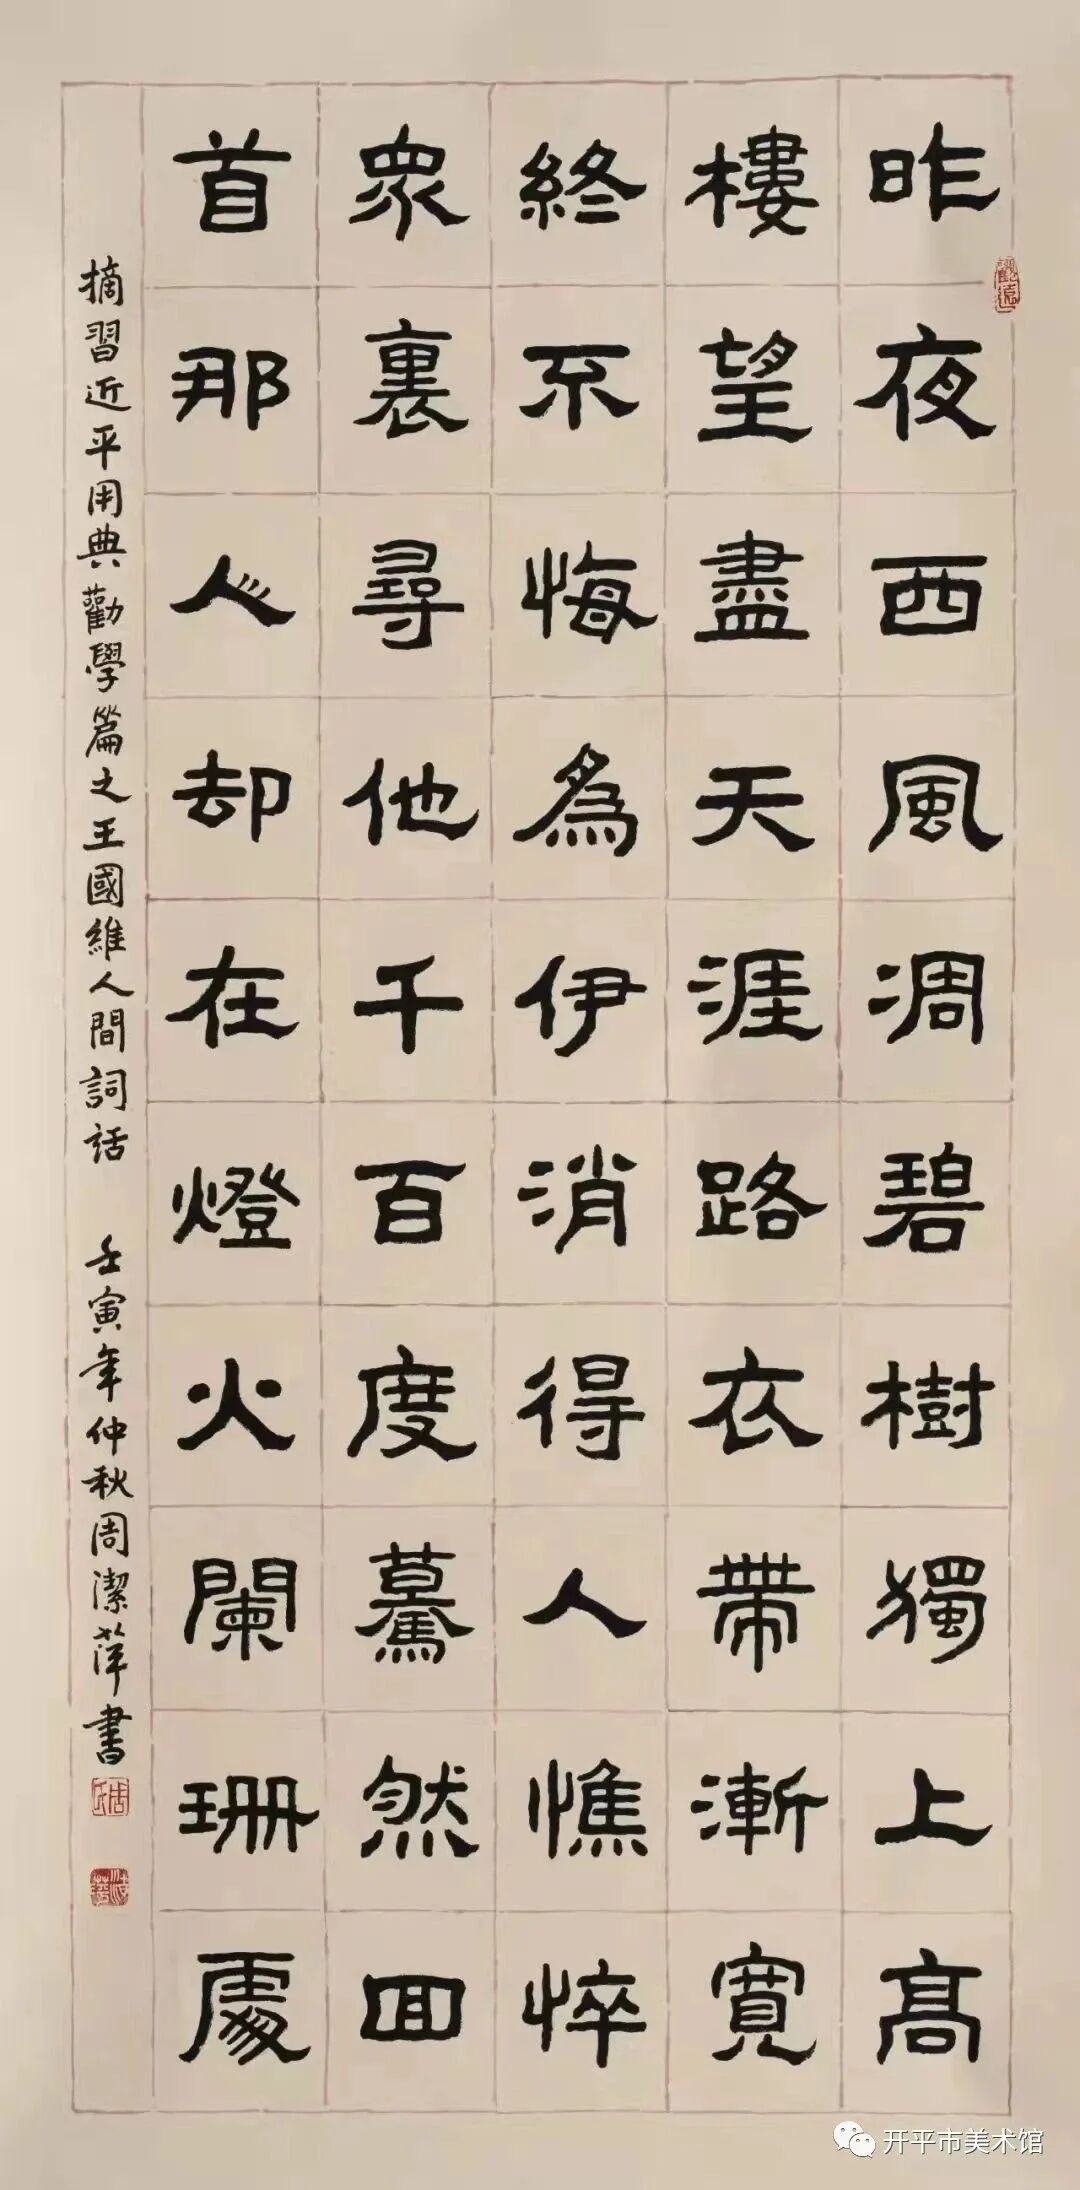 昨夜西風凋碧樹獨上高
樓望盡天涯路衣帶漸寬
終不悔為伊消得人憔悴
眾裏尋他千百度驀然回
首那人却在燈火闌珊處
摘習近平用典勸學篇之王國維人間詞話 壬寅年仲秋周潔萍書
開平市美術館